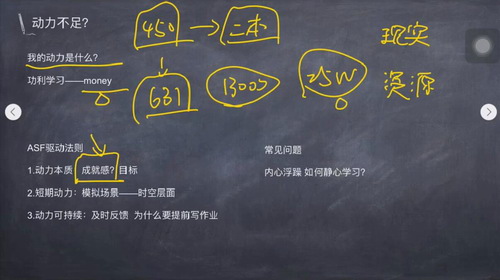 动力不足?
450 → 二本
现实
我的动力是什么?
功利学习——money
631
13000
25W
资源
ASF驱动法则
1.动力本质 成就感? 目标
2.短期动力：模拟场景——时空层面
3.动力可持续：及时反馈 为什么要提前写作业
常见问题
内心浮躁 如何静心学习?